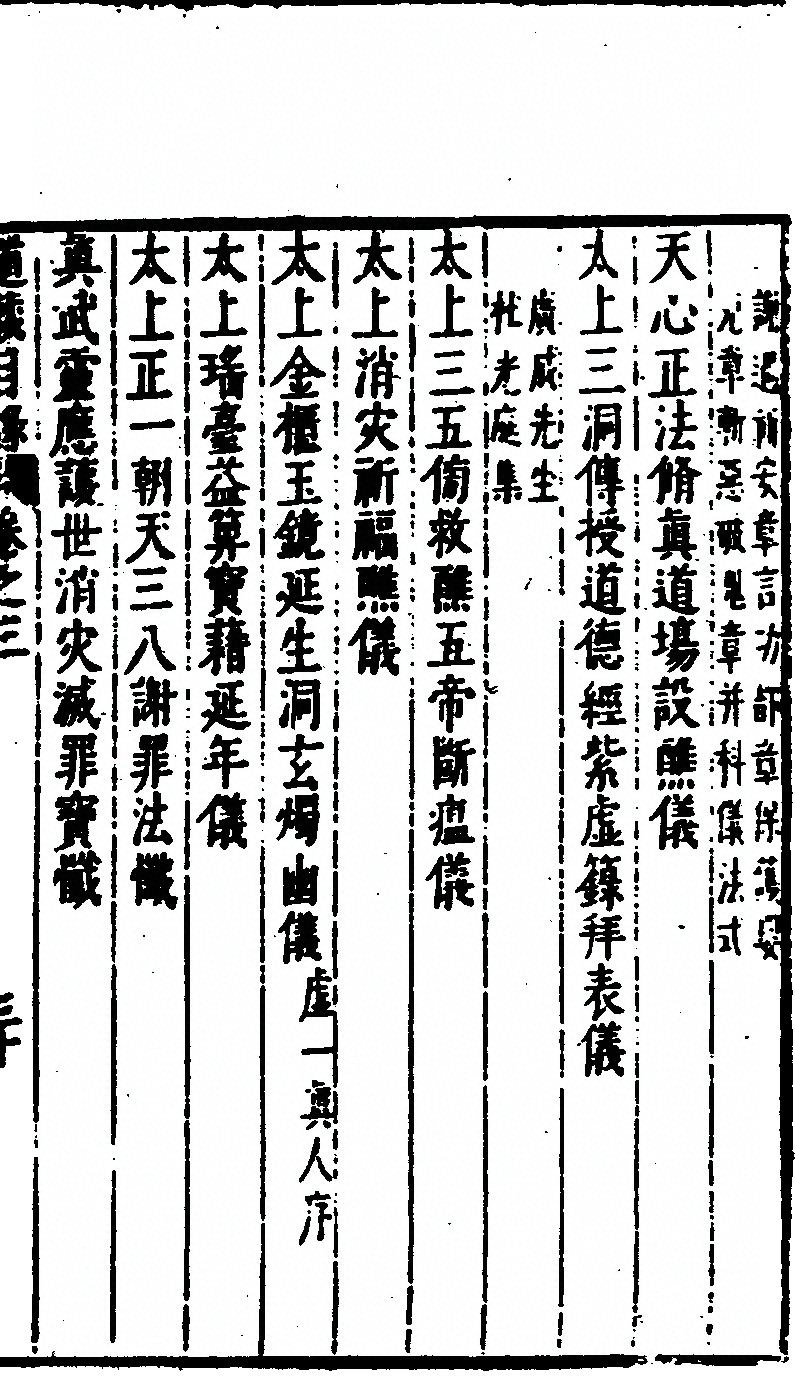 謝過祈安章言功詞章保護嬰
兒章斬惡破鬼章并科儀法式
天心正法脩眞道場設醮儀
太上三洞傳授道德經紫虛籙拜表儀
廣成先生
杜光庭集
太上三五傍救醮五帝斷瘟儀
太上消灾祈福醮儀
太上金櫃玉鏡延生洞玄燭幽儀 虛一眞人序
太上瑤臺益算寶藉延年儀
太上正一朝天三八謝罪法懺
眞武靈應護世消灾滅罪寶懺
道藏目錄卷之三 三十